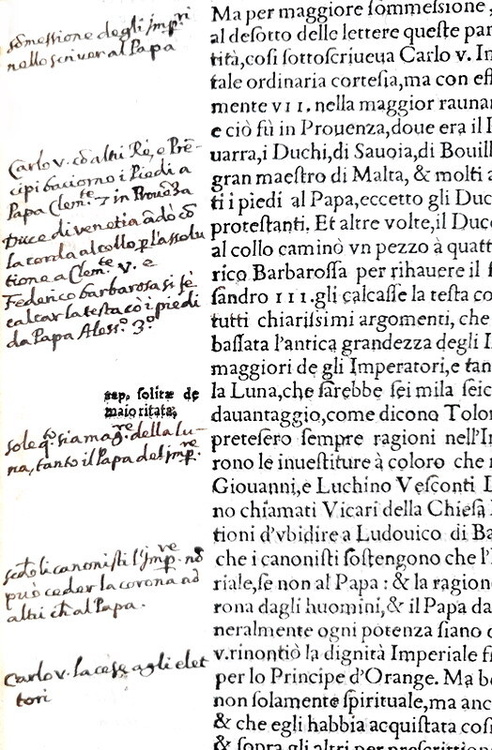 sommessione degli Impri
nello scriver al Papa
Carlo v. cõ altri Rè, e Prē-
cipi baciorno i Piedi a
Papa Clem.te 7 in Prouēza
Duce di venetia ãdò cõ
la corda al collo p l'assolu
tione a Clem.te v. e
Federico barbarosa si fè
calcar la testa cò i piedi
da Papa Aless.o 3.o
cap. solitæ de
maioritate;
sole q.to sia mag.re della lu-
na, tanto il Papa del Imp.re
secõdo li canonisti l'Imp.re nõ
può ceder la corona ad
altri ch̃ al Papa.
Carlo v. la cesse agli elet
tori
Ma per maggiore ſommeſſione,
al deſotto delle lettere queſte par
tità, coſi ſottoſcriueua Carlo v. In
tale ordinaria corteſia, ma con eff
mente v I I. nella maggior raunar
e ciò fù in Prouenza, doue era il R
uarra, i Duchi, di Sauoia, di Bouill
gran maeſtro di Malta, & molti a
ti i piedi al Papa, eccetto gli Duc
proteſtanti. Et altre volte, il Duc
al collo caminò vn pezzo à quatt
rico Barbaroſſa per rihauere il f
ſandro I I I. gli calcaſſe la teſta co
tutti chiariſsimi argomenti, che
baſſata l'antica grandezza degli I
maggiori de gli Imperatori, e tan
la Luna, che ſarebbe ſei mila ſeic
dauantaggio, come dicono Tolor
preteſero ſempre ragioni nell'In
rono le inueſtiture à coloro che r
Giouanni, e Luchino Veſconti D
no chiamati Vicari della Chieſa
tioni d'vbidire a Ludouico di Ba
che i canoniſti ſoſtengono che l'I
riale, ſe non al Papa : & la ragion
rona dagli huomini, & il Papa da
neralmente ogni potenza ſiano o
v. rinontiò la dignità Imperiale fi
per lo Principe d'Orange. Ma be
non ſolamente ſpirituale, ma anc
& che egli habbia acquiſtata coſi
& ſopra gli altri per preſcrittion